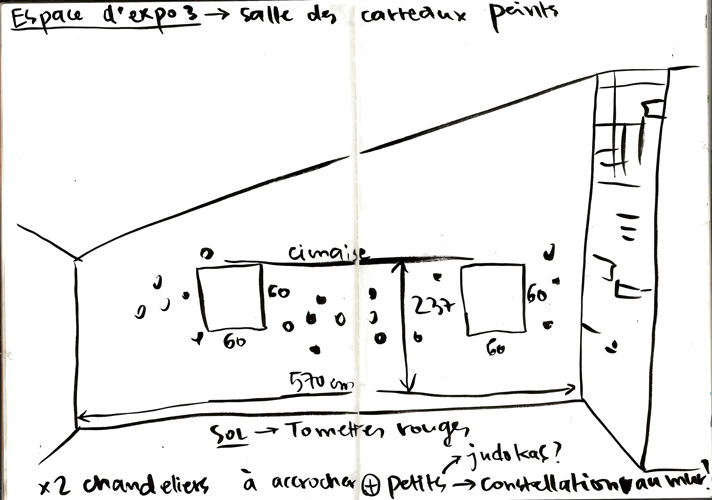 Espace d'expo 3 → salle des carreaux peints
cimaise
60
60
237
60
60
570 cm
SOL → Tomettes rouges
judokas?
x2 chandeliers à accrocher ⊕ petits → constellation au mur?